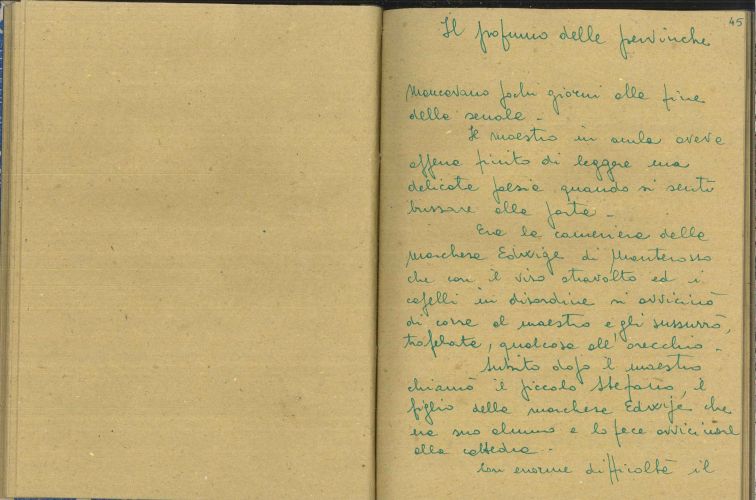 45
Il profumo delle pervinche
Mancavano pochi giorni alla fine
della scuola -
Il maestro in aula aveva
appena finito di leggere una
delicata poesia quando si sentì
bussare alla porta -
Era la cameriera della
marchesa Edwige di Monterosso
che con il viso stravolto ed i
capelli in disordine si avvicinò
di corsa al maestro e gli sussurrò,
trafelata, qualcosa all'orecchio -
Subito dopo il maestro
chiamò il piccolo Stefano, il
figlio della marchesa Edwige che
era suo alunno e lo fece avvicinare
alla cattedra -
Con enorme difficoltà il